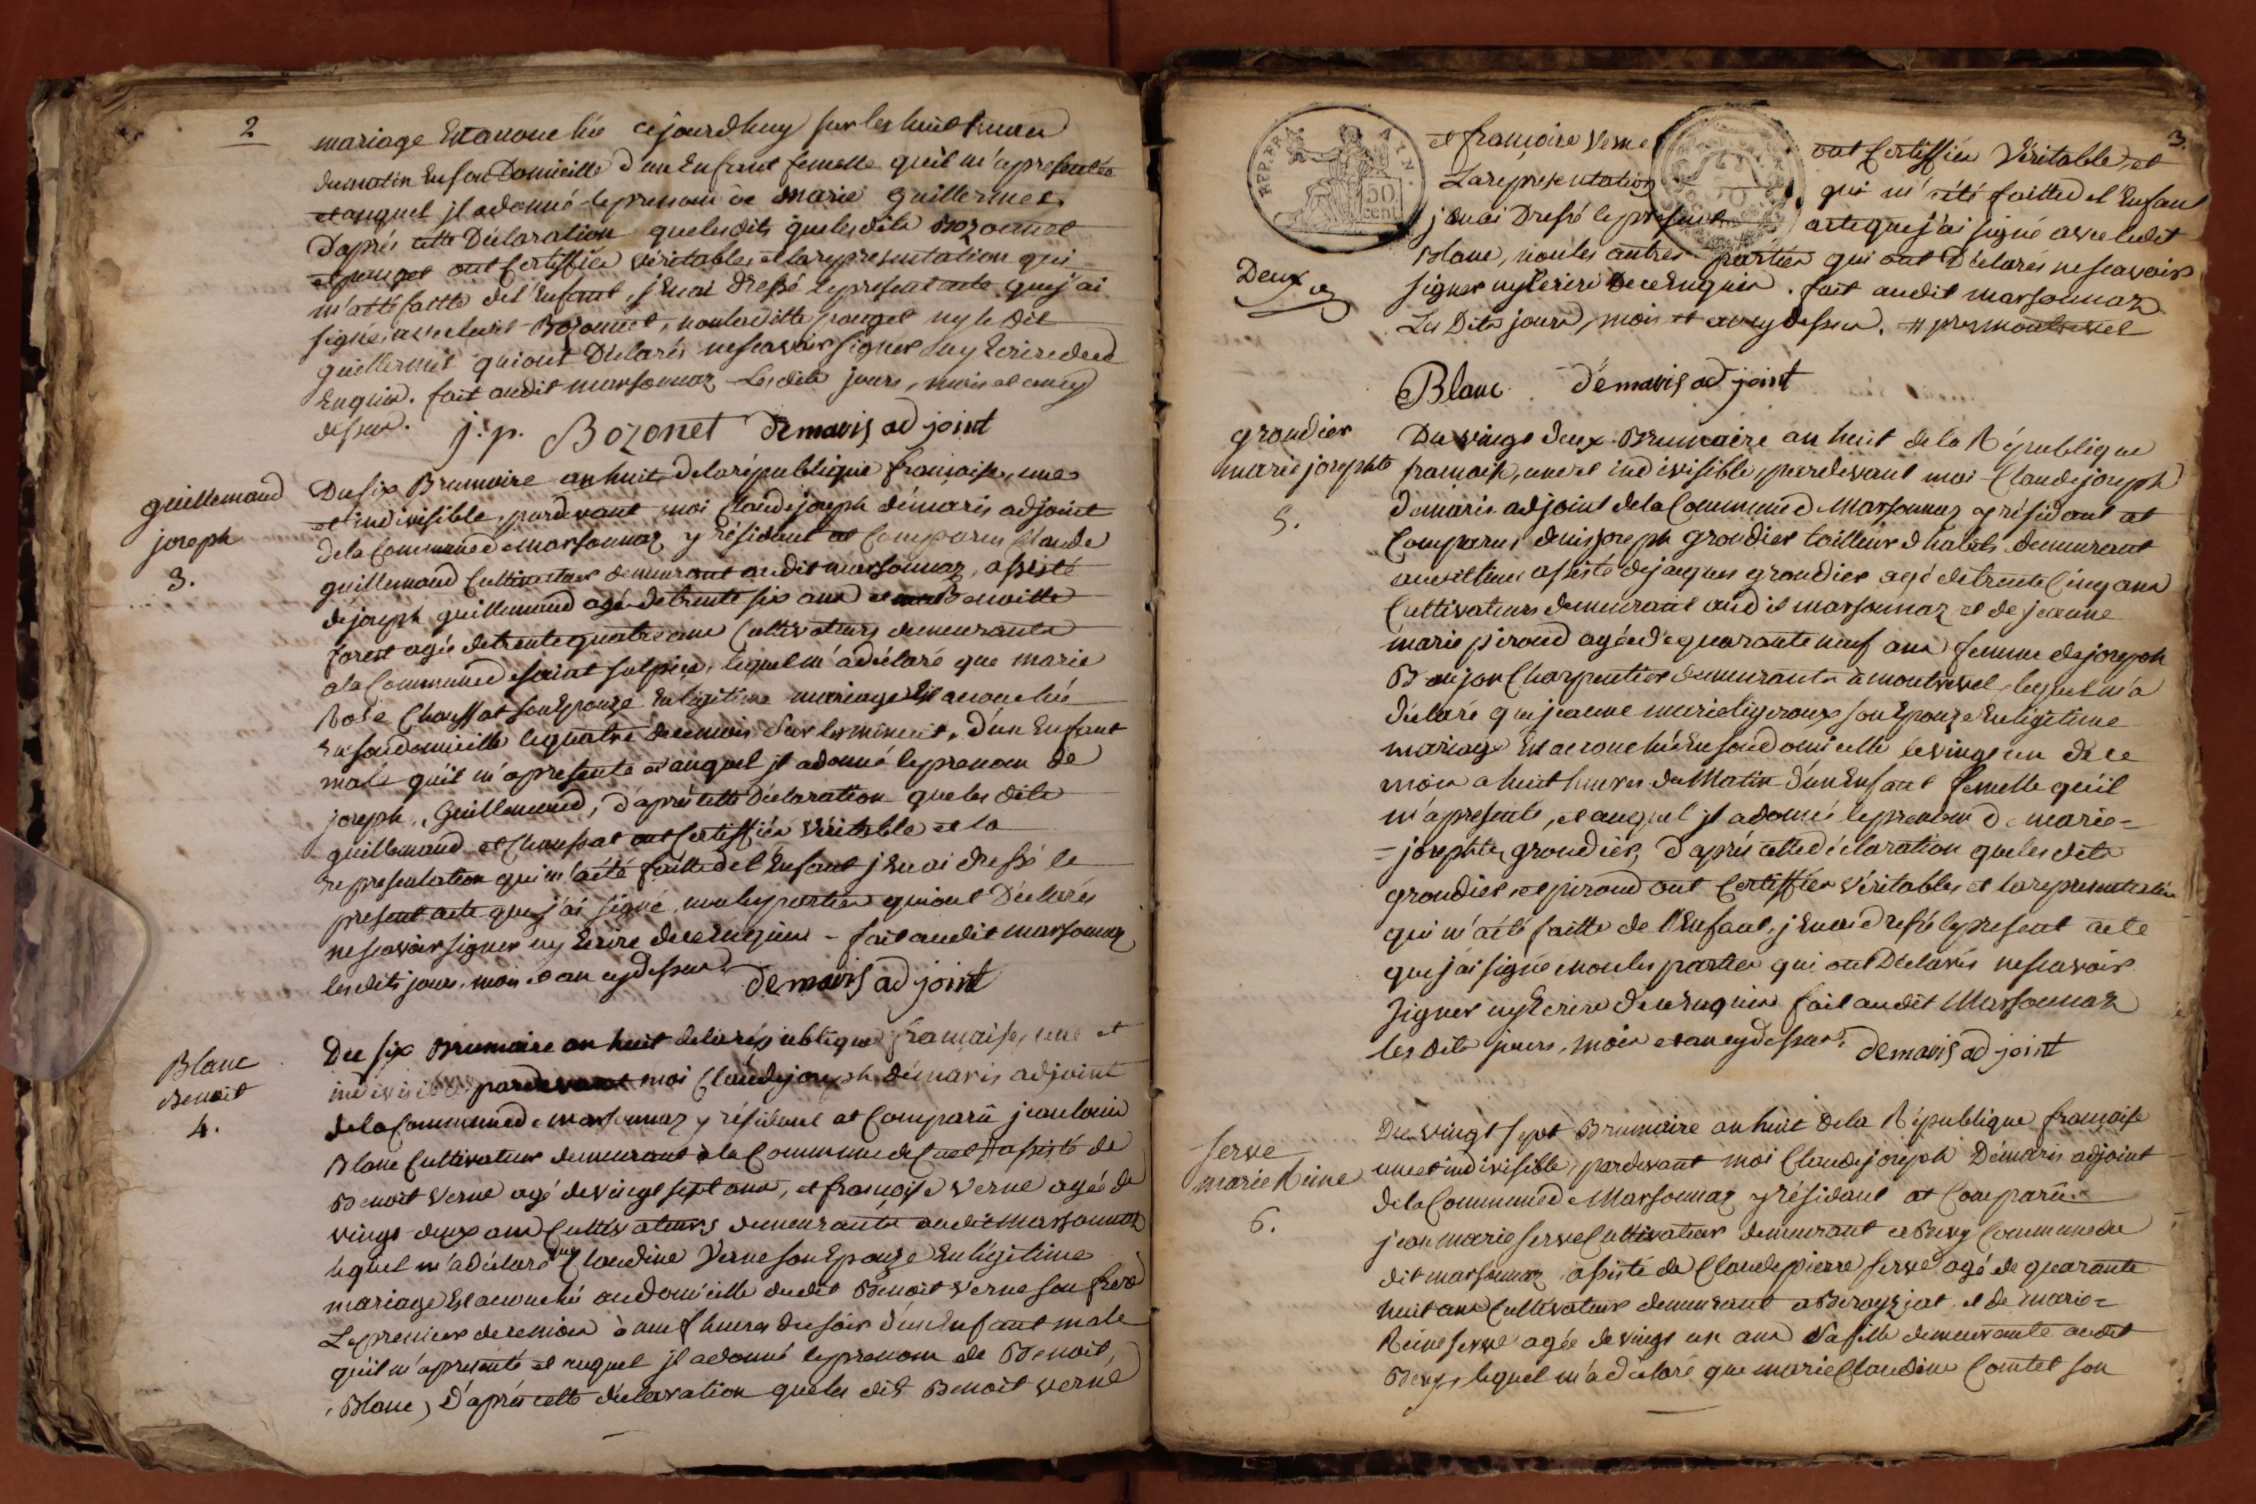 2
mariage Est acouchée cejourdhuy sur les huit heures
du matin En son Domicille d'un Enfant femelle qu'il m'a presentée
et auquel jl a donné le prenom de marie guillermet
D'après cette Déclaration que les dits que les dits Bozonnet
et pauget ont Certiffiés véritables et la representation qui
m'a été faitte de l'Enfant, j'En ai Dressé le present acte que j'ai
signé avec ledit Bozonnet, non laditte pauget ny le dit
guillermet qui ont Déclarés ne scavoir signer ny Ecrire de ce
Enquis. fait audit marsonnaz Les dits jours, mois et an cy
dessus.
j. p. Bozonet demaris ad joint
guillemaud
joseph
3.
Du six Brumaire an huit de la république francoise, une
et indivisible, pardevant moi Claude joseph démaris adjoint
de la Commune de Marsonnaz y résidant at Comparus Claude
guillemaud Cultivateur demeurant audit marsonnaz, assisté
de joseph guillemaud agé de trente six ans et Benoitte
forest agée de trente quatre ans Cultivateurs demeurants
a la Commune de saint sulpice, lequel m'a déclaré que marie
Rose Chaussat son Epouze En légitime mariage Est acouchée
En son domicille le quatre de ce mois Sur les minuit, d'un Enfant
male qu'il m'a presenté et auquel jl a donné le prenom de
joseph Guillemaud, d'après cette Déclaration que les dits
guillemaud et Chaussat ont Certiffiés Véritable et la
representation qui m'a été faitte de l'Enfant j'En ai dressé le
present acte que j'ai signé non les parties qui ont Déclarés
ne scavoir signer ny Ecrire de ce Enquis - fait audit marsonnaz
les dits jours, mois et an cy dessus. demaris ad joint
Blanc
Benoit
4.
Du six Brumaire an huit de la république francaise, une et
indivisible pardevant moi Claude joseph démaris adjoint
de la Commune de marsonnaz y résidant at Comparû jean louis
Blanc Cultivateur demeurant à la Commune de Cuet # assisté de
Benoit Verne agé de vingt sept ans, et francoise Verne agée de
vingt deux ans Cultivateurs demeurants audit Marsonnaz
lequel m'a déclaré que Claudine Verne son Epouze En légitime
mariage Est acouchée au domicille dudit Benoit Verne son frere
Le premier de ce mois à neuf heures du soir d'un Enfant male
qu'il m'a presenté et auquel jl a donné le prenom de Benoit,
Blanc, D'après cette déclaration que les dits Benoit verne
3.
REP. FRA. AIN.
50
cent.
et francoise Verne ont Certiffiés Véritable, et
La representation qui m'a été faitte de l'Enfant
j'En ai Dressé le present acte que j'ai signé avec ledit
Blanc, non les autres parties qui ont Déclarés ne scavoir
signer ny Ecrire de ce Enquis. fait audit marsonnaz
Les Dits jours, mois et an cy dessus. # pres montrevel
Deux
Blanc demaris ad joint
groudier
marie josephte
5.
Du vingt deux Brumaire an huit de la République
francaise, une et indivisible, pardevant moi Claude joseph
Démaris adjoint de la Commune de Marsonnaz y résidant at
Comparus denis joseph groudier tailleur d'habits demeurant
audit lieu assisté de jacques groudier agé de trente Cinq ans
Cultivateurs demeurant audit marsonnaz et de jeanne
marie piroud agée de quarante neuf ans femme de joseph
Boujon Charpentier demeurants à montrevel, lequel m'a
déclaré que jeanne marie ligeroux son Epouze En légitime
mariage Est acouchée En son domicille le vingt un de ce
mois a huit heures du Matin d'un Enfant femelle qu'il
m'a presenté, et auquel jl a donné le prenom de marie=
=josephte groudier, D'après cette déclaration que les dits
groudier et piroud ont Certiffiés Véritables et la representation
qui m'a été faitte de l'Enfant, j'En ai dressé le present acte
que j'ai signé non les parties qui ont Déclarés ne scavoir
signer ny Ecrire de ce Enquis fait audit Marsonnaz
les dits jours, mois et an cy dessus. demaris ad joint
Serve
marie Reine
6.
Du vingt sept Brumaire an huit de la République francoise
une et indivisible, pardevant moi Claude joseph Démaris adjoint
de la Commune de Marsonnaz y résidant at Comparû
jean marie serve Cultivateur demeurant a Bevy Commune du
dit marsonnaz assisté de Claude pierre serve agé de quarante
huit ans Cultivateur demeurant a Bereyziat et de marie=
Reine serve agée de vingt un ans sa fille demeurante audit
Bevy, lequel m'a déclaré que marie Claudine Comtet son